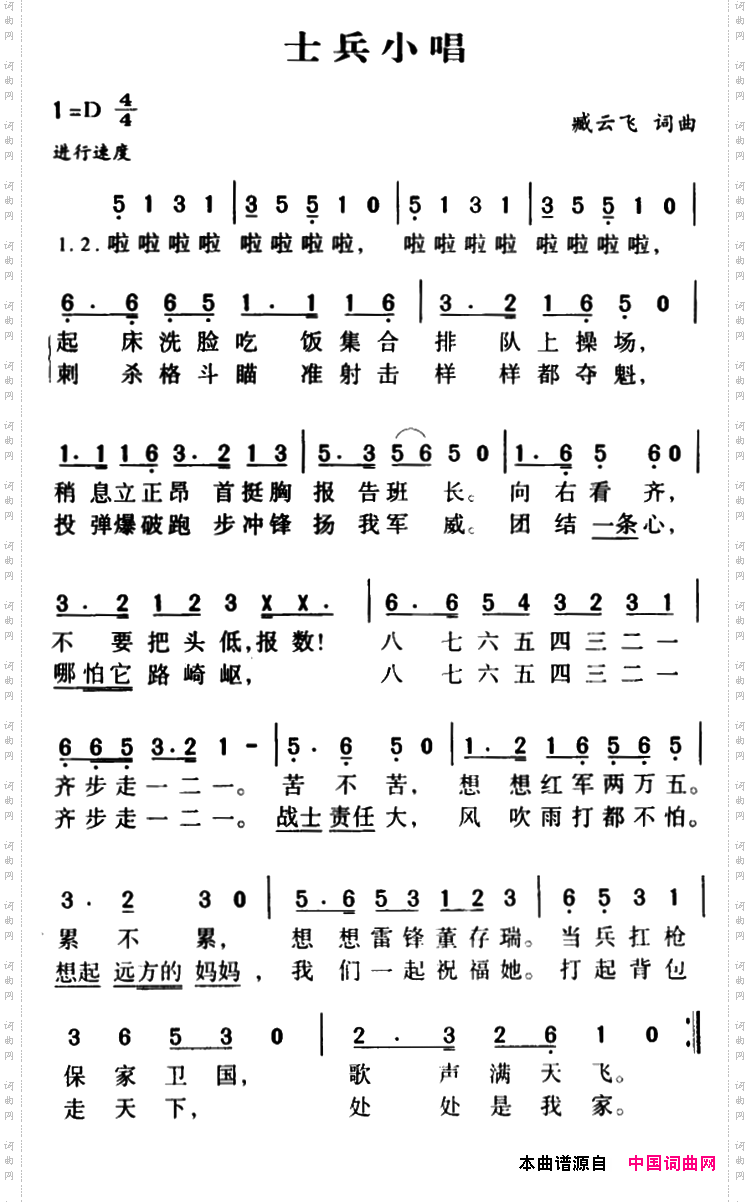 士兵小唱
1=D 4/4
臧云飞 词曲
进行速度
5 1 3 1 | 3 5 5 1 0 | 5 1 3 1 | 3 5 5 1 0 |
1.2.啦啦啦啦 啦啦啦啦, 啦啦啦啦 啦啦啦啦,
6 . 6 6 5 1 . 1 1 6 | 3 . 2 1 6 5 0 |
起床洗脸吃饭集合排队上操场,
刺杀格斗瞄准射击样样都夺魁,
1 . 1 1 6 3 . 2 1 3 | 5 . 3 5 6 5 0 | 1 . 6 5 6 0 |
稍息立正昂首挺胸报告班长。向右看齐,
投弹爆破跑步冲锋扬我军威。团结一条心,
3 . 2 1 2 3 X X . | 6 . 6 5 4 3 2 3 1 |
不要把头低,报数! 八七六五四三二一
哪怕它路崎岖, 八七六五四三二一
6 6 5 3 . 2 1 - | 5 . 6 5 0 | 1 . 2 1 2 5 6 6 5 |
齐步走一二一。苦不苦, 想想红军两万五。
齐步走一二一。战士责任大, 风吹雨打都不怕。
3 . 2 3 0 | 5 . 6 5 3 1 2 3 | 6 5 3 1 |
累不累, 想想雷锋董存瑞。当兵扛枪
想起远方的妈妈, 我们一起祝福她。打起背包
3 6 5 3 0 | 2 . 3 2 6 1 0 :|
保家卫国, 歌声满天飞。
走天下, 处处是我家。
本曲谱源自 中国词曲网